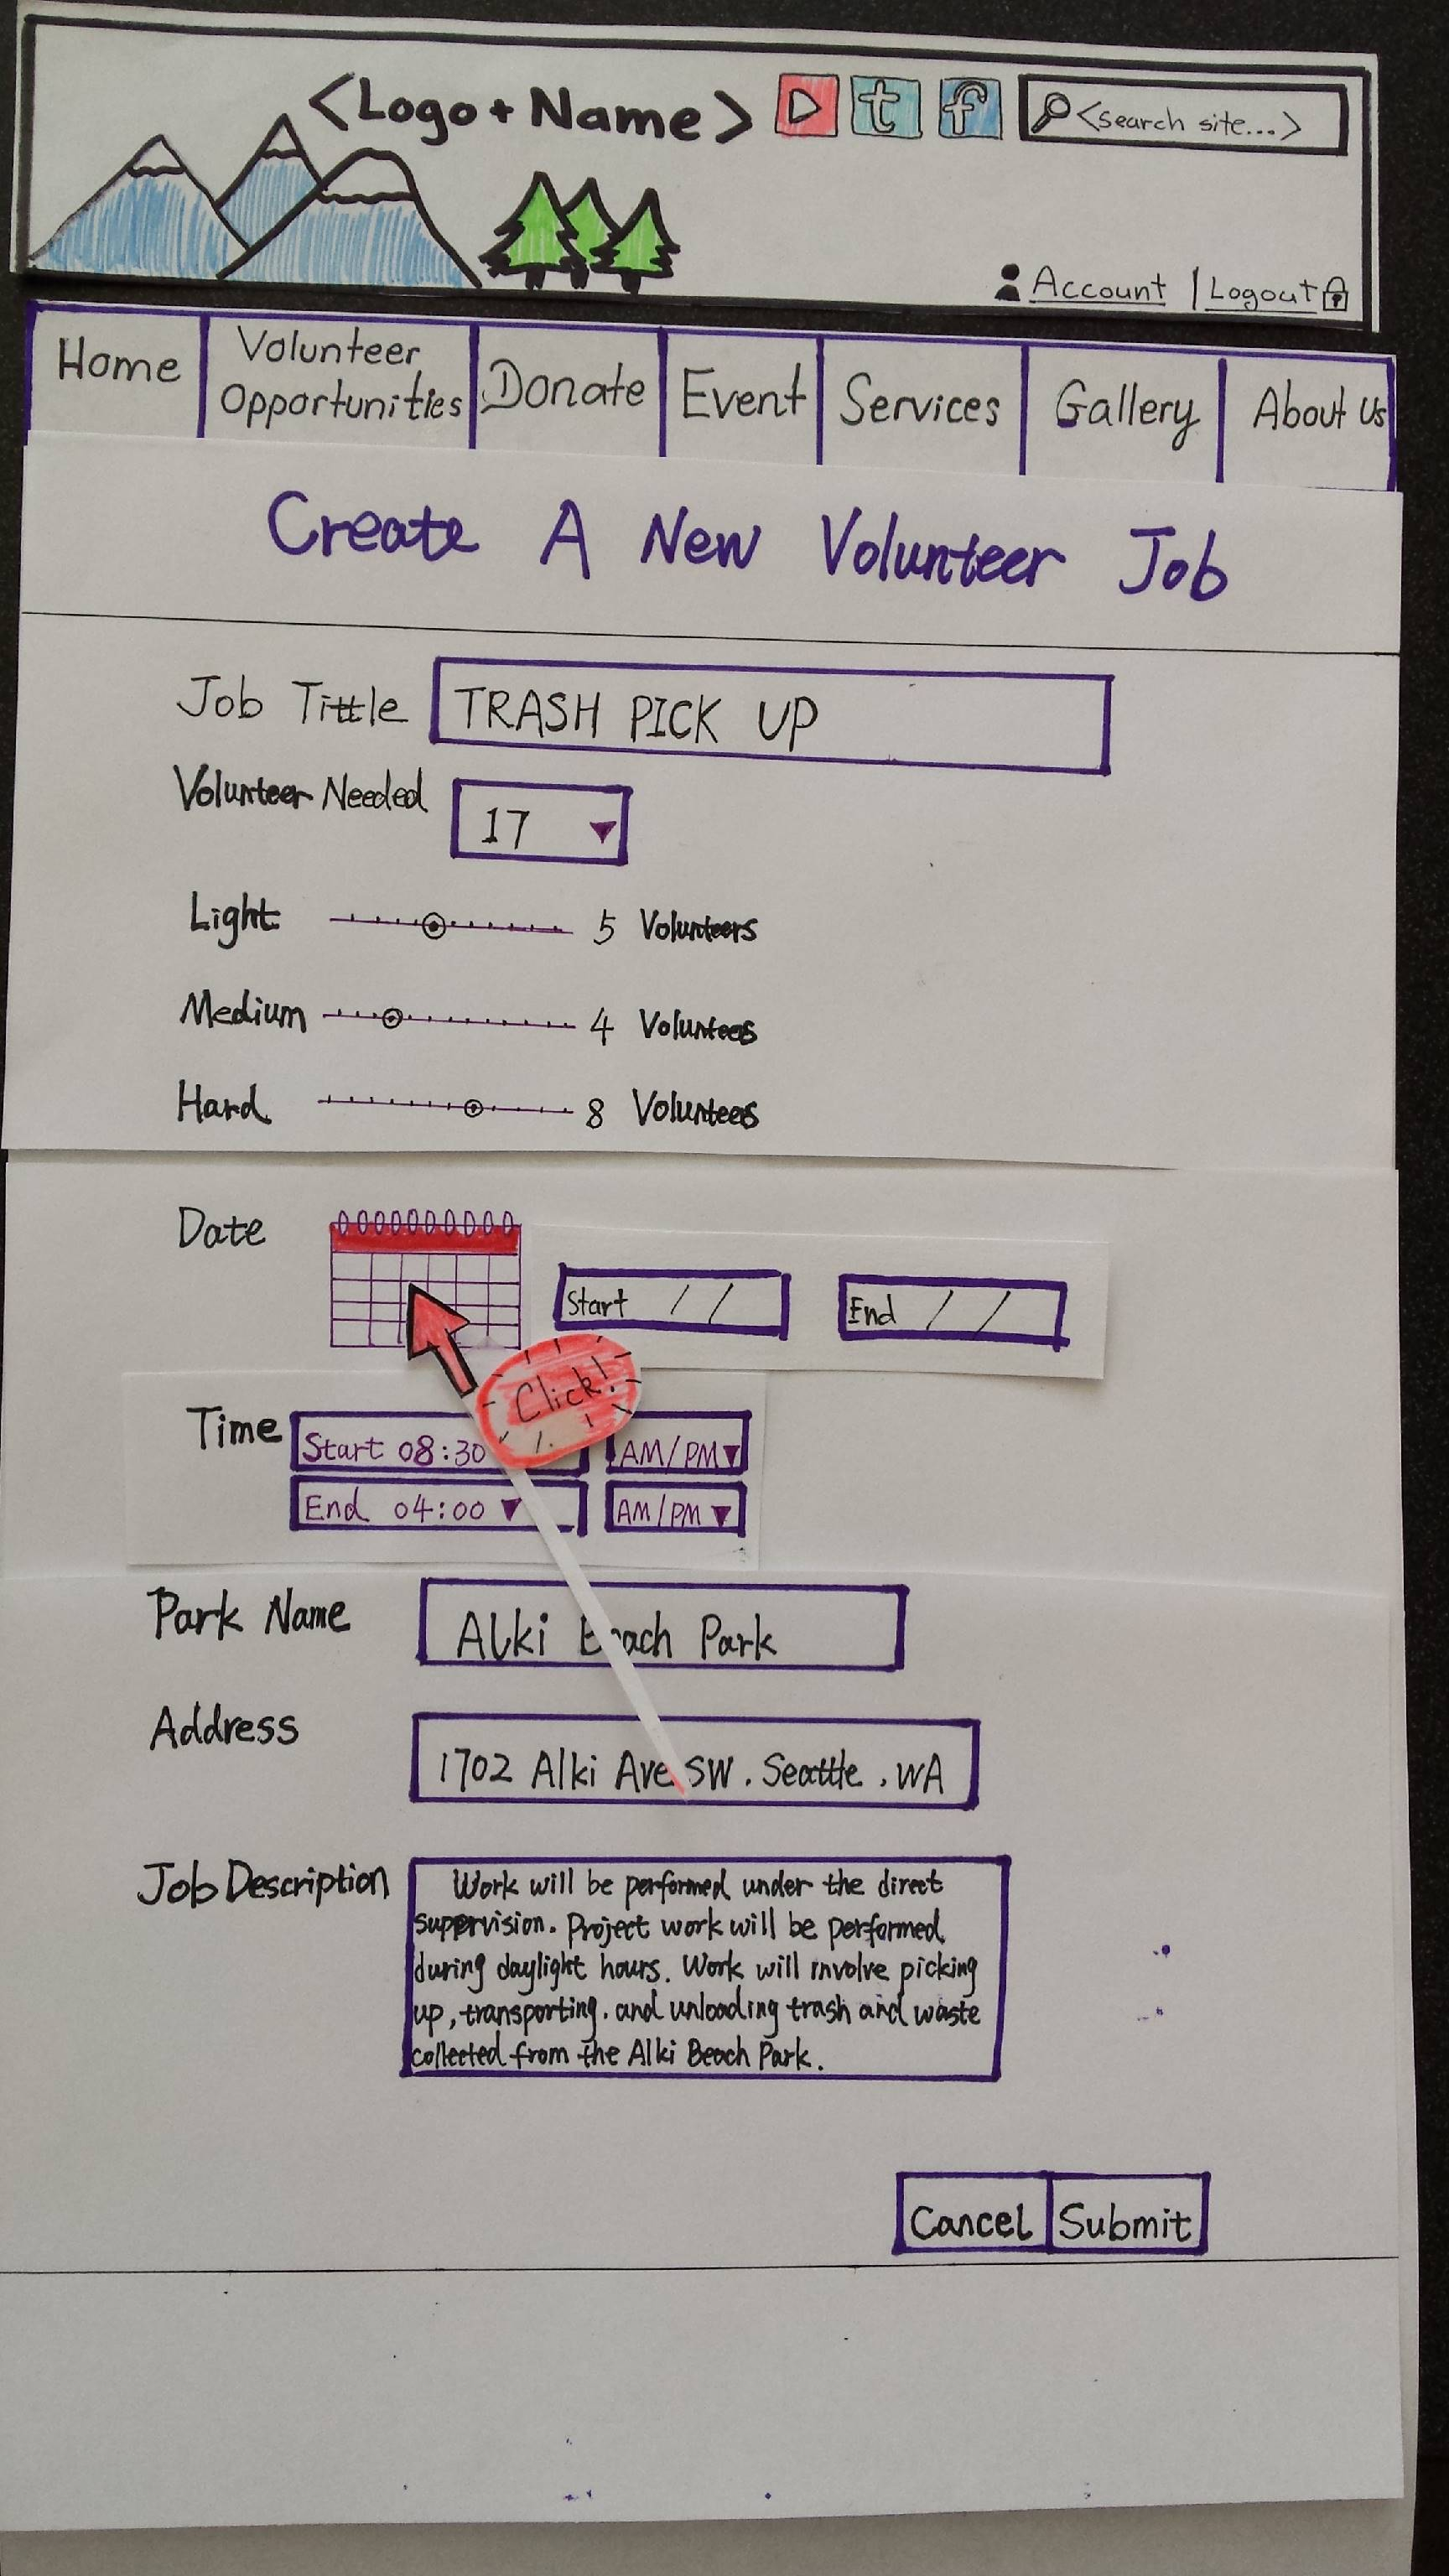 <Logo + Name>
t f
<search site...>
Account | Logout
Home
Volunteer Opportunities
Donate
Event
Services
Gallery
About Us
Create A New Volunteer Job
Job Tittle TRASH PICK UP
Volunteer Needed 17
Light 5 Volunteers
Medium 4 Voluntees
Hard 8 Voluntees
Date
Start / /
End / /
Click!
Time Start 08:30 AM/PM
End 04:00 AM/PM
Park Name Alki Beach Park
Address 1702 Alki Ave SW. Seattle, WA
Job Description
Work will be performed under the direct
supervision. Project work will be performed
during daylight hours. Work will involve picking
up, transporting. and unloading trash and waste
collected from the Alki Beach Park.
Cancel Submit